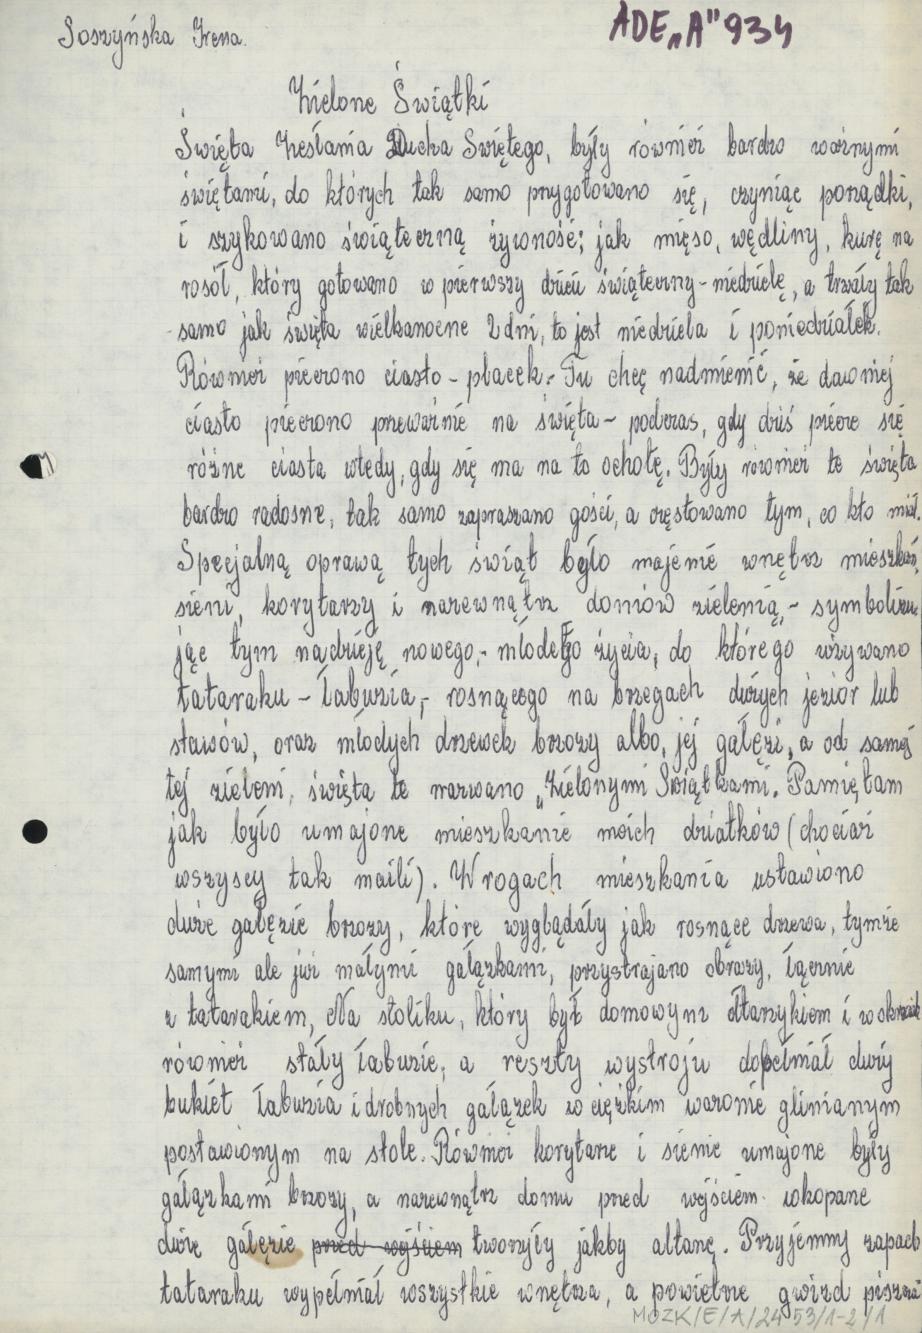 Soszyńska Irena.
ADE „A" 934
Zielone Świątki
Święta Zesłania Ducha Świętego, były również bardzo ważnymi
świętami, do których tak samo przygotowano się, czyniąc porządki,
i szykowano świąteczną żywność; jak mięso, wędliny, kurę na
rosół, który gotowano w pierwszy dzień świąteczny - niedzielę, a trwały tak
samo jak święta wielkanocne 2 dni, to jest niedziela i poniedziałek.
Również pieczono ciasto - placek.- Tu chcę nadmienić, że dawniej
ciasto pieczono przeważnie na święta - podczas, gdy dziś piecze się
różne ciasta wtedy, gdy się ma na to ochotę. Były również te święta
bardzo radosne, tak samo zapraszano gości, a częstowano tym, co kto miał.
Specjalną oprawą tych świąt było majenie wnętrz mieszkań,
sieni, korytarzy i nazewnątrz domów zielenią,- symbolizu-
jąc tym nadzieję nowego,- młodego życia, do którego używano
tataraku - łabuzia,- rosnącego na brzegach dużych jezior lub
stawów, oraz młodych drzewek brzozy albo, jej gałęzi, a od samej
tej zieleni, święta te nazwano „Zielonymi Świątkami. Pamiętam
jak było umajone mieszkanie moich dziadków (chociaż
wszyscy tak maili). W rogach mieszkania ustawiono
duże gałęzie brzozy, które wyglądały jak rosnące drzewa, tymże
samymi ale już małymi gałązkami, przystrajano obrazy, łącznie
z tatarakiem, Na stoliku, który był domowym ołtarzykiem i w oknach
również stały łabuzie, a reszty wystroju dopełniał duży
bukiet łabuzia i drobnych gałązek w ciężkim wazonie glinianym
postawionym na stole. Również korytarze i sienie umajone były
gałązkami brzozy, a nazewnątrz domu przed wejściem wkopane
duże gałęzie przed wejściem tworzyły jakby altanę. Przyjemny zapach
tataraku wypełniał wszystkie wnętrza, a powietrze gwizd
MOZK/E/A/2453/1-2/1